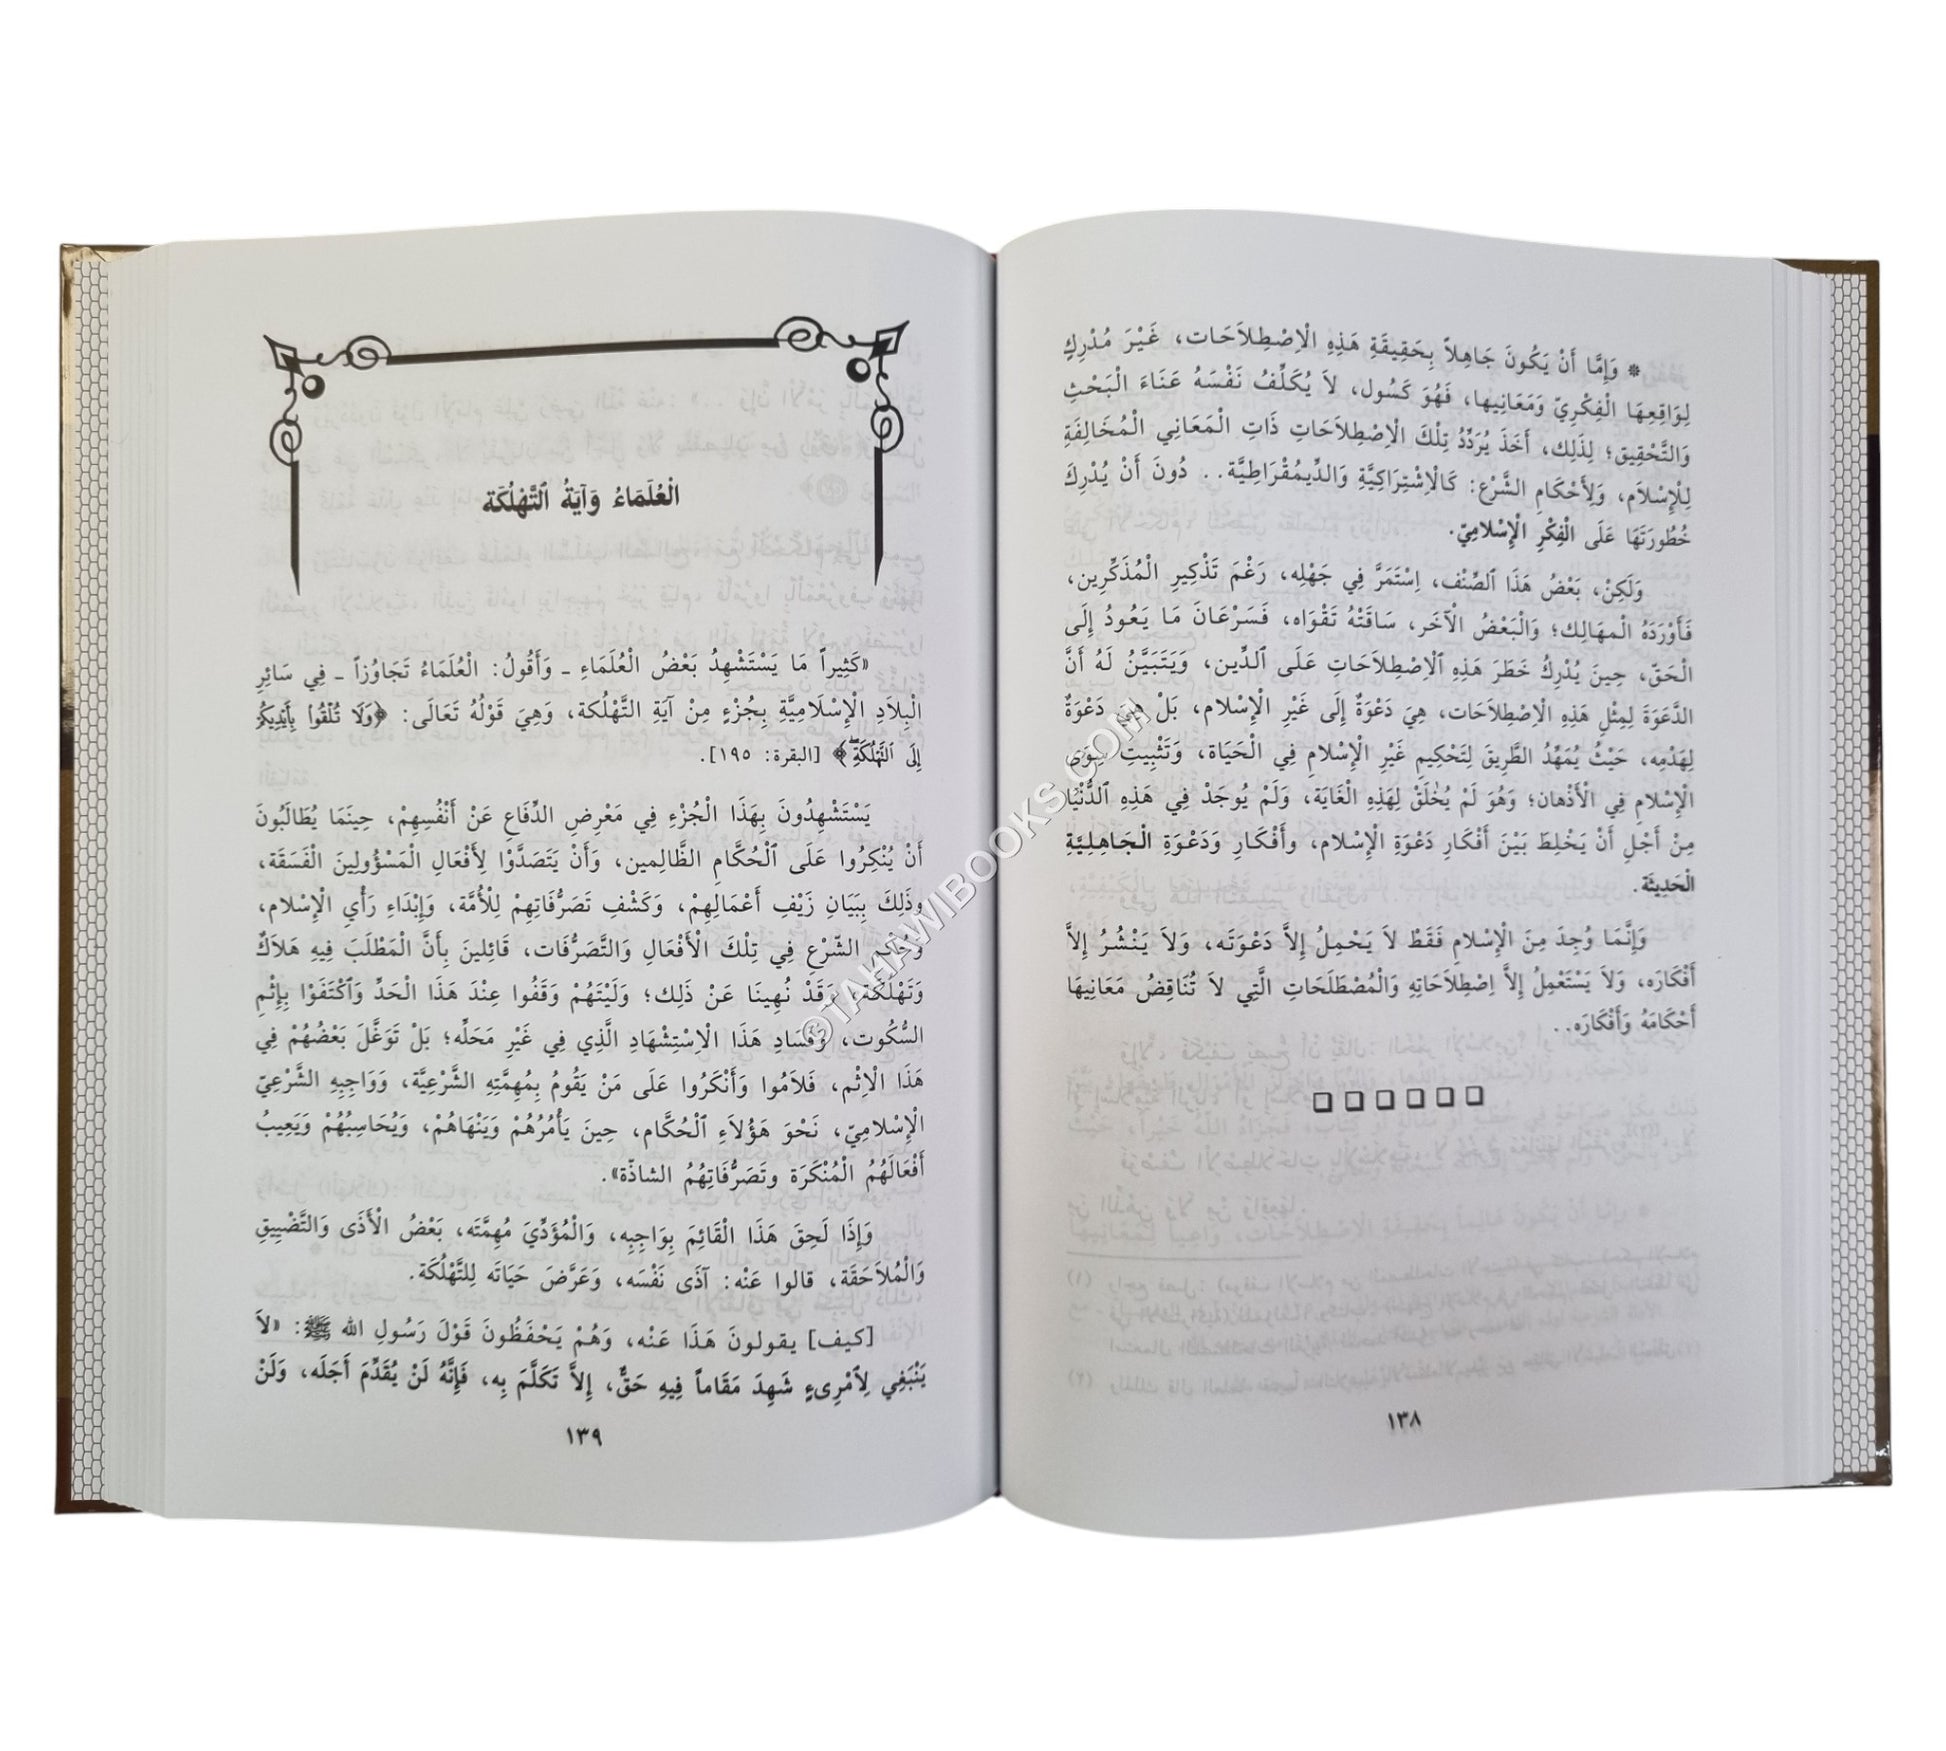 * وَإِمَّا أَنْ يَكُونَ جَاهِلاً بِحَقِيقَةِ هَذِهِ الْاِصْطِلاَحَات، غَيْرَ مُدْرِكٍ
لِوَاقِعِهَا الْفِكْرِيّ وَمَعَانِيها، فَهُوَ كَسُول، لاَ يُكَلِّفُ نَفْسَهُ عَنَاءَ الْبَحْثِ
وَالتَّحْقِيق؛ لِذَلِك، أَخَذَ يُرَدِّدُ تِلْكَ الْاِصْطِلاَحَاتِ ذَاتِ الْمَعَانِي الْمُخَالِفَةِ
لِلْإِسْلاَم، وَلِأَحْكَامِ الشَّرْع: كَالْاِشْتِرَاكِيَّةِ وَالدِّيمُقْرَاطِيَّة.. دُونَ أَنْ يُدْرِكَ
خُطُورَتَهَا عَلَى الْفِكْرِ الْإِسْلاَمِيّ.
وَلَكِنْ، بَعْضُ هَذَا الصِّنْف، اِسْتَمَرَّ فِي جَهْلِه، رَغْمَ تَذْكِيرِ الْمُذَكِّرِين،
فَأَوْرَدَهُ الْمهَالِك؛ وَالْبَعْضُ الْآخَر، سَاقَتْهُ تَقْوَاه، فَسَرْعَانَ مَا يَعُودُ إِلَى
الْحَقّ، حِينَ يُدْرِكُ خَطَرَ هَذِهِ الْاِصْطِلاَحَاتِ عَلَى الدِّين، وَيَتَبَيَّنُ لَهُ أَنَّ
الدَّعَوَةَ لِمِثْلِ هَذِهِ الْاِصْطِلاَحَات، هِيَ دَعْوَةٌ إِلَى غَيْرِ الْإِسْلاَم، بَلْ هِيَ دَعْوَةٌ
لِهَدْمِه، حَيْثُ يُمَهِّدُ الطَّرِيقَ لِتَحْكِيمِ غَيْرِ الْإِسْلاَمِ فِي الْحَيَاة، وَتَثْبِيتِ سِوَى
الْإِسْلاَمِ فِي الْأَذْهان؛ وَهُوَ لَمْ يُخْلَقْ لِهَذِهِ الْغَايَة، وَلَمْ يُوجَدْ فِي هَذِهِ الدُّنْيَا
مِنْ أَجْلِ أَنْ يَخْلِطَ بَيْنَ أَفْكَارِ دَعْوَةِ الْإِسْلاَم، وأَفْكَارِ وَدَعْوَةِ الْجَاهِلِيَّةِ
الْحَدِيثَة.
وَإِنَّمَا وُجِدَ مِنَ الْإِسْلاَمِ فَقَطْ لاَ يَحْمِلُ إِلاَّ دَعْوَتَه، وَلاَ يَنْشُرُ إِلاَّ
أَفْكَارَه، وَلاَ يَسْتَعْمِلُ إِلاَّ اِصْطِلاَحَاتِهِ وَالْمُصْطَلَحَاتِ الَّتِي لاَ تُنَاقِضُ مَعَانِيهَا
أَحْكَامَهُ وَأَفْكَارَه..
١٣٨
الْعُلَمَاءُ وَآيَةُ التَّهْلُكَة
«كَثِيراً مَا يَسْتَشْهِدُ بَعْضُ الْعُلَمَاءِ ـ وَأَقُولُ: الْعُلَمَاءُ تَجَاوُزاً ـ فِي سَائِرِ
الْبِلاَدِ الْإِسْلاَمِيَّةِ بِجُزْءٍ مِنْ آيَةِ التَّهْلُكة، وَهِيَ قَوْلُهُ تَعَالَى: ﴿وَلَا تُلْقُوا بِأَيْدِيكُمْ
إِلَى التَّهْلُكَةِ﴾ [البقرة: ١٩٥].
يَسْتَشْهِدُونَ بِهَذَا الْجُزْءِ فِي مَعْرِضِ الدِّفَاعِ عَنْ أَنْفُسِهِمْ، حِينَمَا يُطَالَبُونَ
أَنْ يُنْكِرُوا عَلَى الْحُكَّامِ الظَّالِمِين، وَأَنْ يَتَصَدَّوْا لِأَفْعَالِ الْمَسْؤُولِينَ الْفَسَقَة،
وذَلِكَ بِبَيَانِ زَيْفِ أَعْمَالِهِمْ، وَكَشْفِ تَصَرُّفَاتِهِمْ لِلْأُمَّة، وَإِبْدَاءِ رَأْيِ الْإِسْلاَم،
وَحُكْمِ الشَّرْعِ فِي تِلْكَ الْأَفْعَالِ وَالتَّصَرُّفَات، قَائِلِينَ بِأَنَّ الْمَطْلَبَ فِيهِ هَلاَكٌ
وَتَهْلُكَة، وَقَدْ نُهِينَا عَنْ ذَلِك؛ وَلَيْتَهُمْ وَقَفُوا عِنْدَ هَذَا الْحَدِّ وَاكْتَفَوْا بِإِثْمِ
السُّكُوت، وَفَسَادِ هَذَا الْاِسْتِشْهَادِ الَّذِي فِي غَيْرِ مَحَلِّه؛ بَلْ تَوَغَّلَ بَعْضُهُمْ فِي
هَذَا الْإِثْم، فَلاَمُوا وَأَنْكَرُوا عَلَى مَنْ يَقُومُ بِمُهِمَّتِهِ الشَّرْعِيَّة، وَوَاجِبِهِ الشَّرْعِيّ
الْإِسْلاَمِيّ، نَحْوَ هَؤُلاَءِ الْحُكَّام، حِينَ يَأْمُرُهُمْ وَيَنْهَاهُمْ، وَيُحَاسِبُهُمْ وَيَعِيبُ
أَفْعَالَهُمُ الْمُنْكَرَة وتَصَرُّفَاتِهُمُ الشاذّة».
وَإِذَا لَحِقَ هَذَا الْقَائِمَ بِوَاجِبِه، وَالْمُؤَدِّيَ مُهِمَّتَه، بَعْضُ الْأَذَى وَالتَّضْيِيقِ
وَالْمُلاَحَقَة، قالوا عَنْه: آذَى نَفْسَه، وَعَرَّضَ حَيَاتَه لِلتَّهْلُكَة.
[كيف] يقولونَ هَذَا عَنْه، وَهُمْ يَحْفَظُونَ قَوْلَ رَسُولِ الله ﷺ: «لاَ
يَنْبَغِي لِامْرِىءٍ شَهِدَ مَقَاماً فِيهِ حَقٌّ، إِلاَّ تَكَلَّمَ بِه، فَإِنَّهُ لَنْ يُقَدِّمَ أَجَلَه، وَلَنْ
١٣٩
©TAHAWIBOOKS.COM